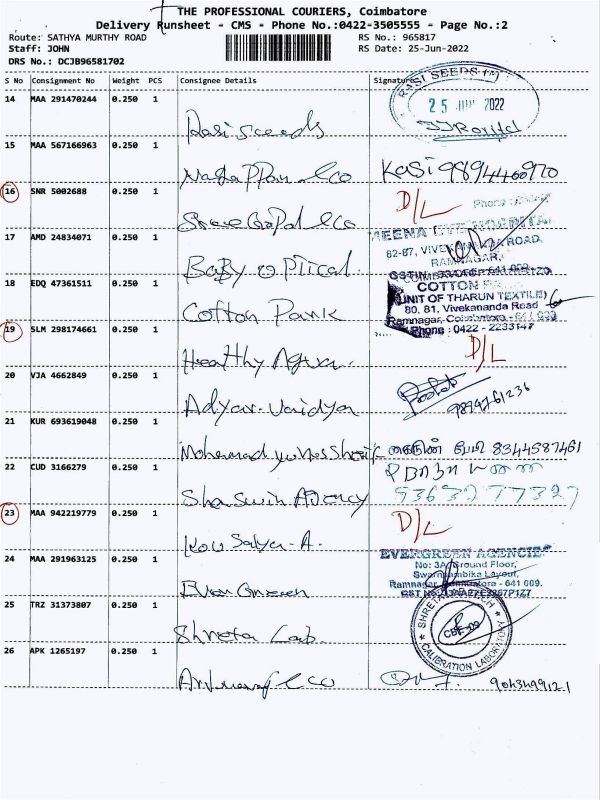 THE PROFESSIONAL COURIERS, Coimbatore
Delivery Runsheet - CMS - Phone No.:0422-3505555 - Page No.:2
Route: SATHYA MURTHY ROAD
RS No.: 965817
Staff: JOHN
RS Date: 25-Jun-2022
DRS No.: DCJB96581702
S No Consignment No Weight PCS Consignee Details Signature
RASI SEEDS (P)
14 MAA 291470244 0.250 1
25 JUN 2022
Rasi Seeds
15 MAA 567166963 0.250 1
Kasi 9894460970
16 SNR 5002688 0.250 1
D/L
Phone :
Sree Gopal & Co
MEENA EYE HOSPITAL
17 AMD 24834071 0.250 1
82-87, VIVEKANANDA ROAD,
RAMNAGAR,
Baby Optical
18 EDQ 47361511 0.250 1
COTTON
(UNIT OF THARUN TEXTILE)
80, 81, Vivekananda Road
Ramnagar, Coimbatore - 641 009
Cotton Park
Phone : 0422 - 2233147
19 SLM 298174661 0.250 1
D/L
Healthy Aqua
20 VJA 4662849 0.250 1
9894761236
Adyar Vaidya
21 KUR 693619048 0.250 1
Mohammad Younus Sheriff
8344987461
22 CUD 3166279 0.250 1
Shaswin Agency
23 MAA 942219779 0.250 1
D/L
Kousalya. A.
EVERGREEN AGENCIES
24 MAA 291963125 0.250 1
No: 3A, Ground Floor,
Swarnambika Layout,
Ramnagar, Coimbatore - 641 009.
Evergreen
25 TRZ 31373807 0.250 1
CBE-09
CALIBRATION LABORATORY
Shreta Lab.
26 APK 1265197 0.250 1
9043499121